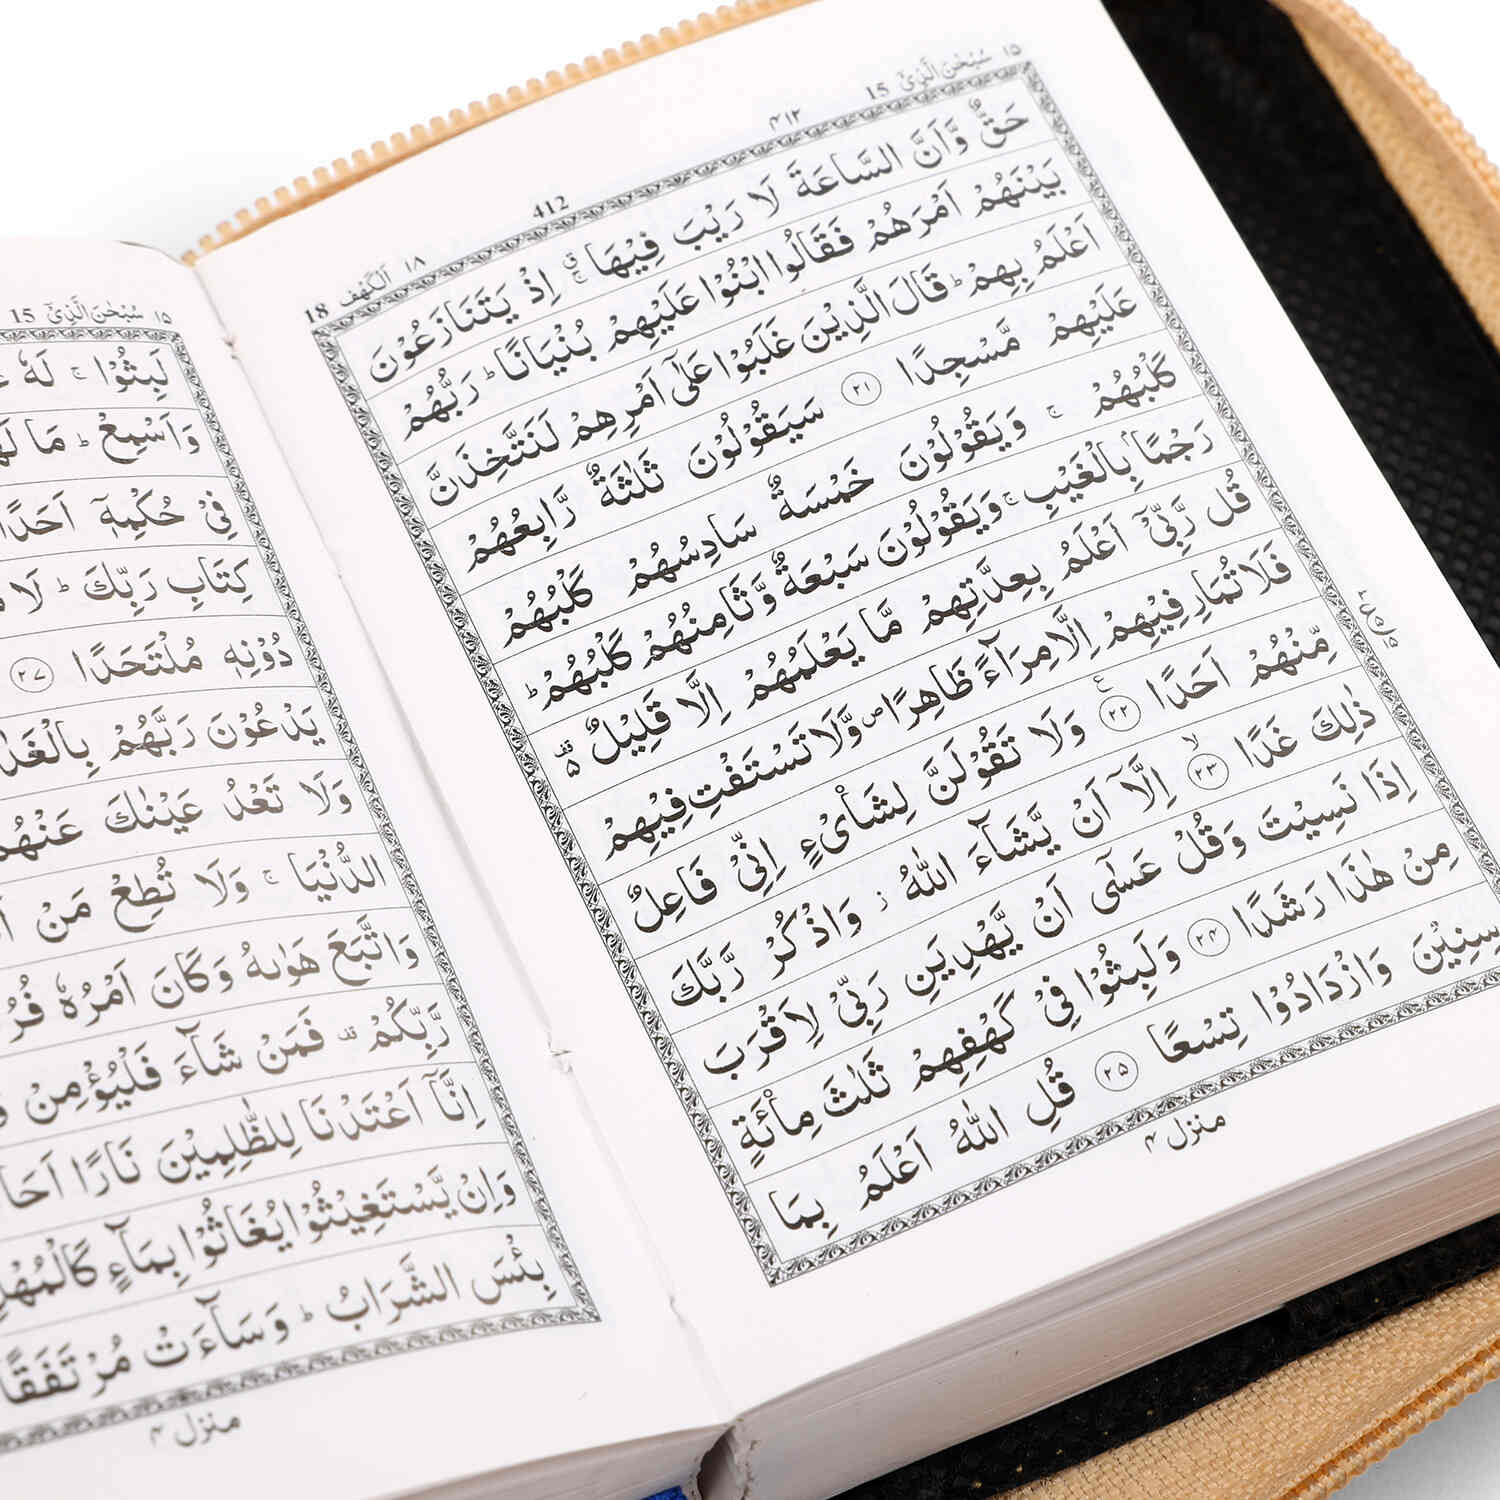 ١٥ سُبْحٰنَ الَّذِیْۤ 15
٤١٢
412
١٨ اَلْكَهْف 18
حَقٌّ وَّاَنَّ السَّاعَةَ لَا رَیْبَ فِیْهَا ۚ اِذْ یَتَنَازَعُوْنَ
بَیْنَهُمْ اَمْرَهُمْ فَقَالُوا ابْنُوْا عَلَیْهِمْ بُنْیَانًا ؕ رَبُّهُمْ
اَعْلَمُ بِهِمْ ؕ قَالَ الَّذِیْنَ غَلَبُوْا عَلٰۤی اَمْرِهِمْ لَنَتَّخِذَنَّ
عَلَیْهِمْ مَّسْجِدًا ۝٢١ سَیَقُوْلُوْنَ ثَلٰثَةٌ رَّابِعُهُمْ
كَلْبُهُمْ ۚ وَیَقُوْلُوْنَ خَمْسَةٌ سَادِسُهُمْ كَلْبُهُمْ
رَجْمًۢا بِالْغَیْبِ ۚ وَیَقُوْلُوْنَ سَبْعَةٌ وَّثَامِنُهُمْ كَلْبُهُمْ ؕ
قُلْ رَّبِّیْۤ اَعْلَمُ بِعِدَّتِهِمْ مَّا یَعْلَمُهُمْ اِلَّا قَلِیْلٌ ۫
فَلَا تُمَارِ فِیْهِمْ اِلَّا مِرَآءً ظَاهِرًا ۪ وَّلَا تَسْتَفْتِ فِیْهِمْ
مِّنْهُمْ اَحَدًا ۝٢٢ وَلَا تَقُوْلَنَّ لِشَایْءٍ اِنِّیْ فَاعِلٌ
ذٰلِكَ غَدًا ۝٢٣ اِلَّاۤ اَنْ یَّشَآءَ اللّٰهُ ؗ وَاذْكُرْ رَّبَّكَ
اِذَا نَسِیْتَ وَقُلْ عَسٰۤی اَنْ یَّهْدِیَنِ رَبِّیْ لِاَقْرَبَ
مِنْ هٰذَا رَشَدًا ۝٢٤ وَلَبِثُوْا فِیْ كَهْفِهِمْ ثَلٰثَ مِائَةٍ
سِنِیْنَ وَازْدَادُوْا تِسْعًا ۝٢٥ قُلِ اللّٰهُ اَعْلَمُ بِمَا
منزل ٤
١٥ سُبْحٰنَ الَّذِیْۤ 15
لَبِثُوْا ۚ لَهٗ
وَاَسْمِعْ ؕ مَا
فِیْ حُكْمِهٖۤ اَحَدًا
كِتَابِ رَبِّكَ ؕ لَا
دُوْنِهٖ مُلْتَحَدًا ۝٢٧
یَدْعُوْنَ رَبَّهُمْ
وَلَا تَعْدُ عَیْنٰكَ عَنْهُمْ
الدُّنْیَا ۚ وَلَا تُطِعْ مَنْ
وَاتَّبَعَ هَوٰىهُ وَكَانَ اَمْرُهٗ
رَّبِّكُمْ ۫ فَمَنْ شَآءَ فَلْیُؤْمِنْ
اِنَّاۤ اَعْتَدْنَا لِلظّٰلِمِیْنَ نَارًا
وَاِنْ یَّسْتَغِیْثُوْا یُغَاثُوْا بِمَآءٍ كَالْمُهْلِ
بِئْسَ الشَّرَابُ ؕ وَسَآءَتْ مُرْتَفَقًا
منزل ٤